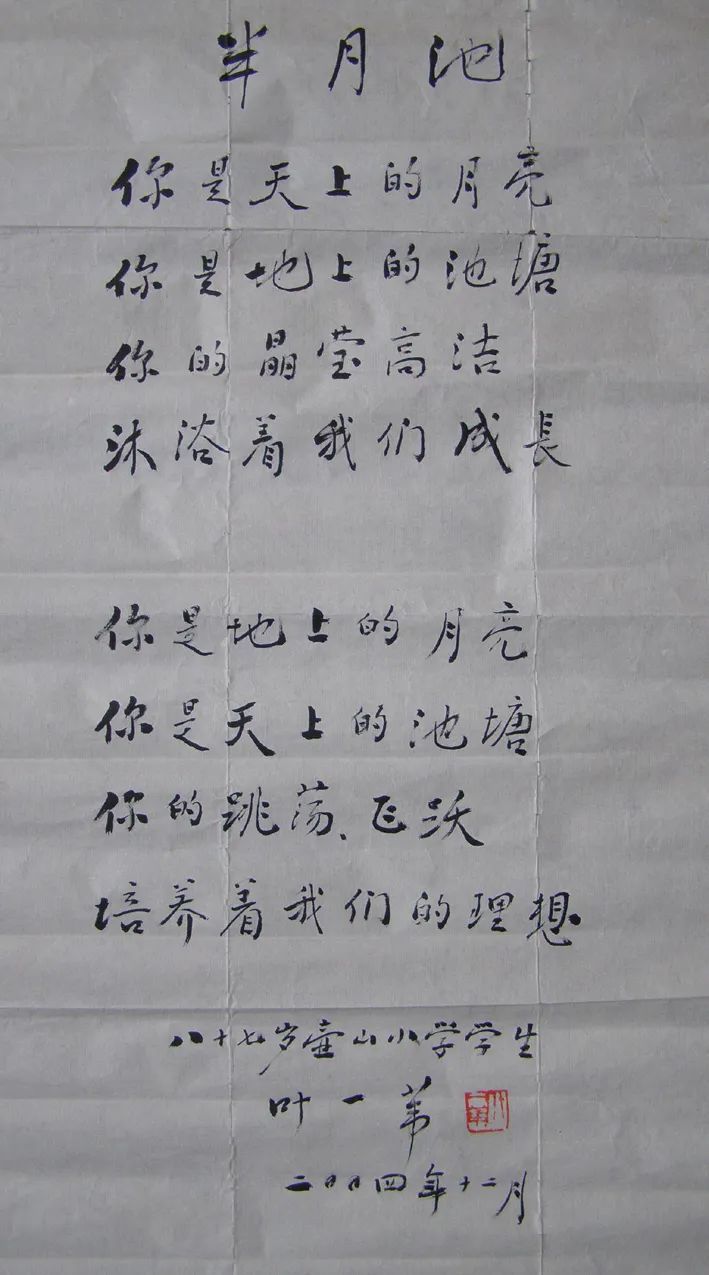 半月池
你是天上的月亮
你是地上的池塘
你的晶莹高洁
沐浴着我们成長
你是地上的月亮
你是天上的池塘
你的跳荡、飞沃
培养着我们的理想
八十七岁壶山小学学生
叶一苇
二00四年十二月